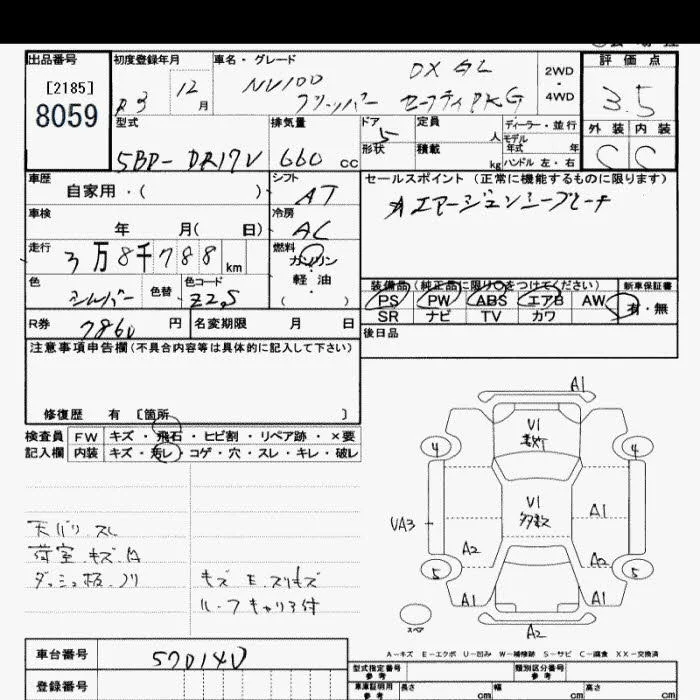 出品番号 初度登録年月 車名・グレード 評価点
[2185]
8059
R3 12月
NV100 DX GL
クリッパー セーフティPKG
2WD
・
4WD
3.5
外装 内装
C C
型式 排気量 ドア 定員 人 ディーラー・並行
5BD-DR17V 660cc 5
形状 積載 kg
モデル年式 年
ハンドル 左・右
車歴 自家用・( )
シフト AT
セールスポイント(正常に機能するものに限ります)
エマージェンシーブレーキ
車検 年 月( 日)
冷房 AC
走行 3万8千788km
燃料 ガソリン・軽油・( )
色 シルバー 色替 色コード Z2S
装備品(純正品に限り○をつけてください) 新車保証書
PS PW ABS エアB AW 有・無
SR ナビ TV カワ
R券 7860円 名変期限 月 日
後日品
注意事項申告欄(不具合内容等は具体的に記入して下さい)
修復歴 有 〔箇所 〕
検査員 FW キズ・飛石・ヒビ割・リペア跡・×要
記入欄 内装 キズ・汚レ・コゲ・穴・スレ・キレ・破レ
A1
V1
4 4
V1
多数
VA3 A1
A2 A2
5 5
A1 A1
A2
スペア
天バリ スレ
荷室 キズ
ダッシュ板 ノリ
キズ E スリキズ
ルーフキャリア付
A-キズ E-エクボ U-凹み W-補修跡 S-サビ C-腐食 XX-交換済
車台番号 570140
登録番号
型式指定番号 参考 類別区分番号 参考
車庫証明用 参考 長さ cm 幅 cm 高さ cm